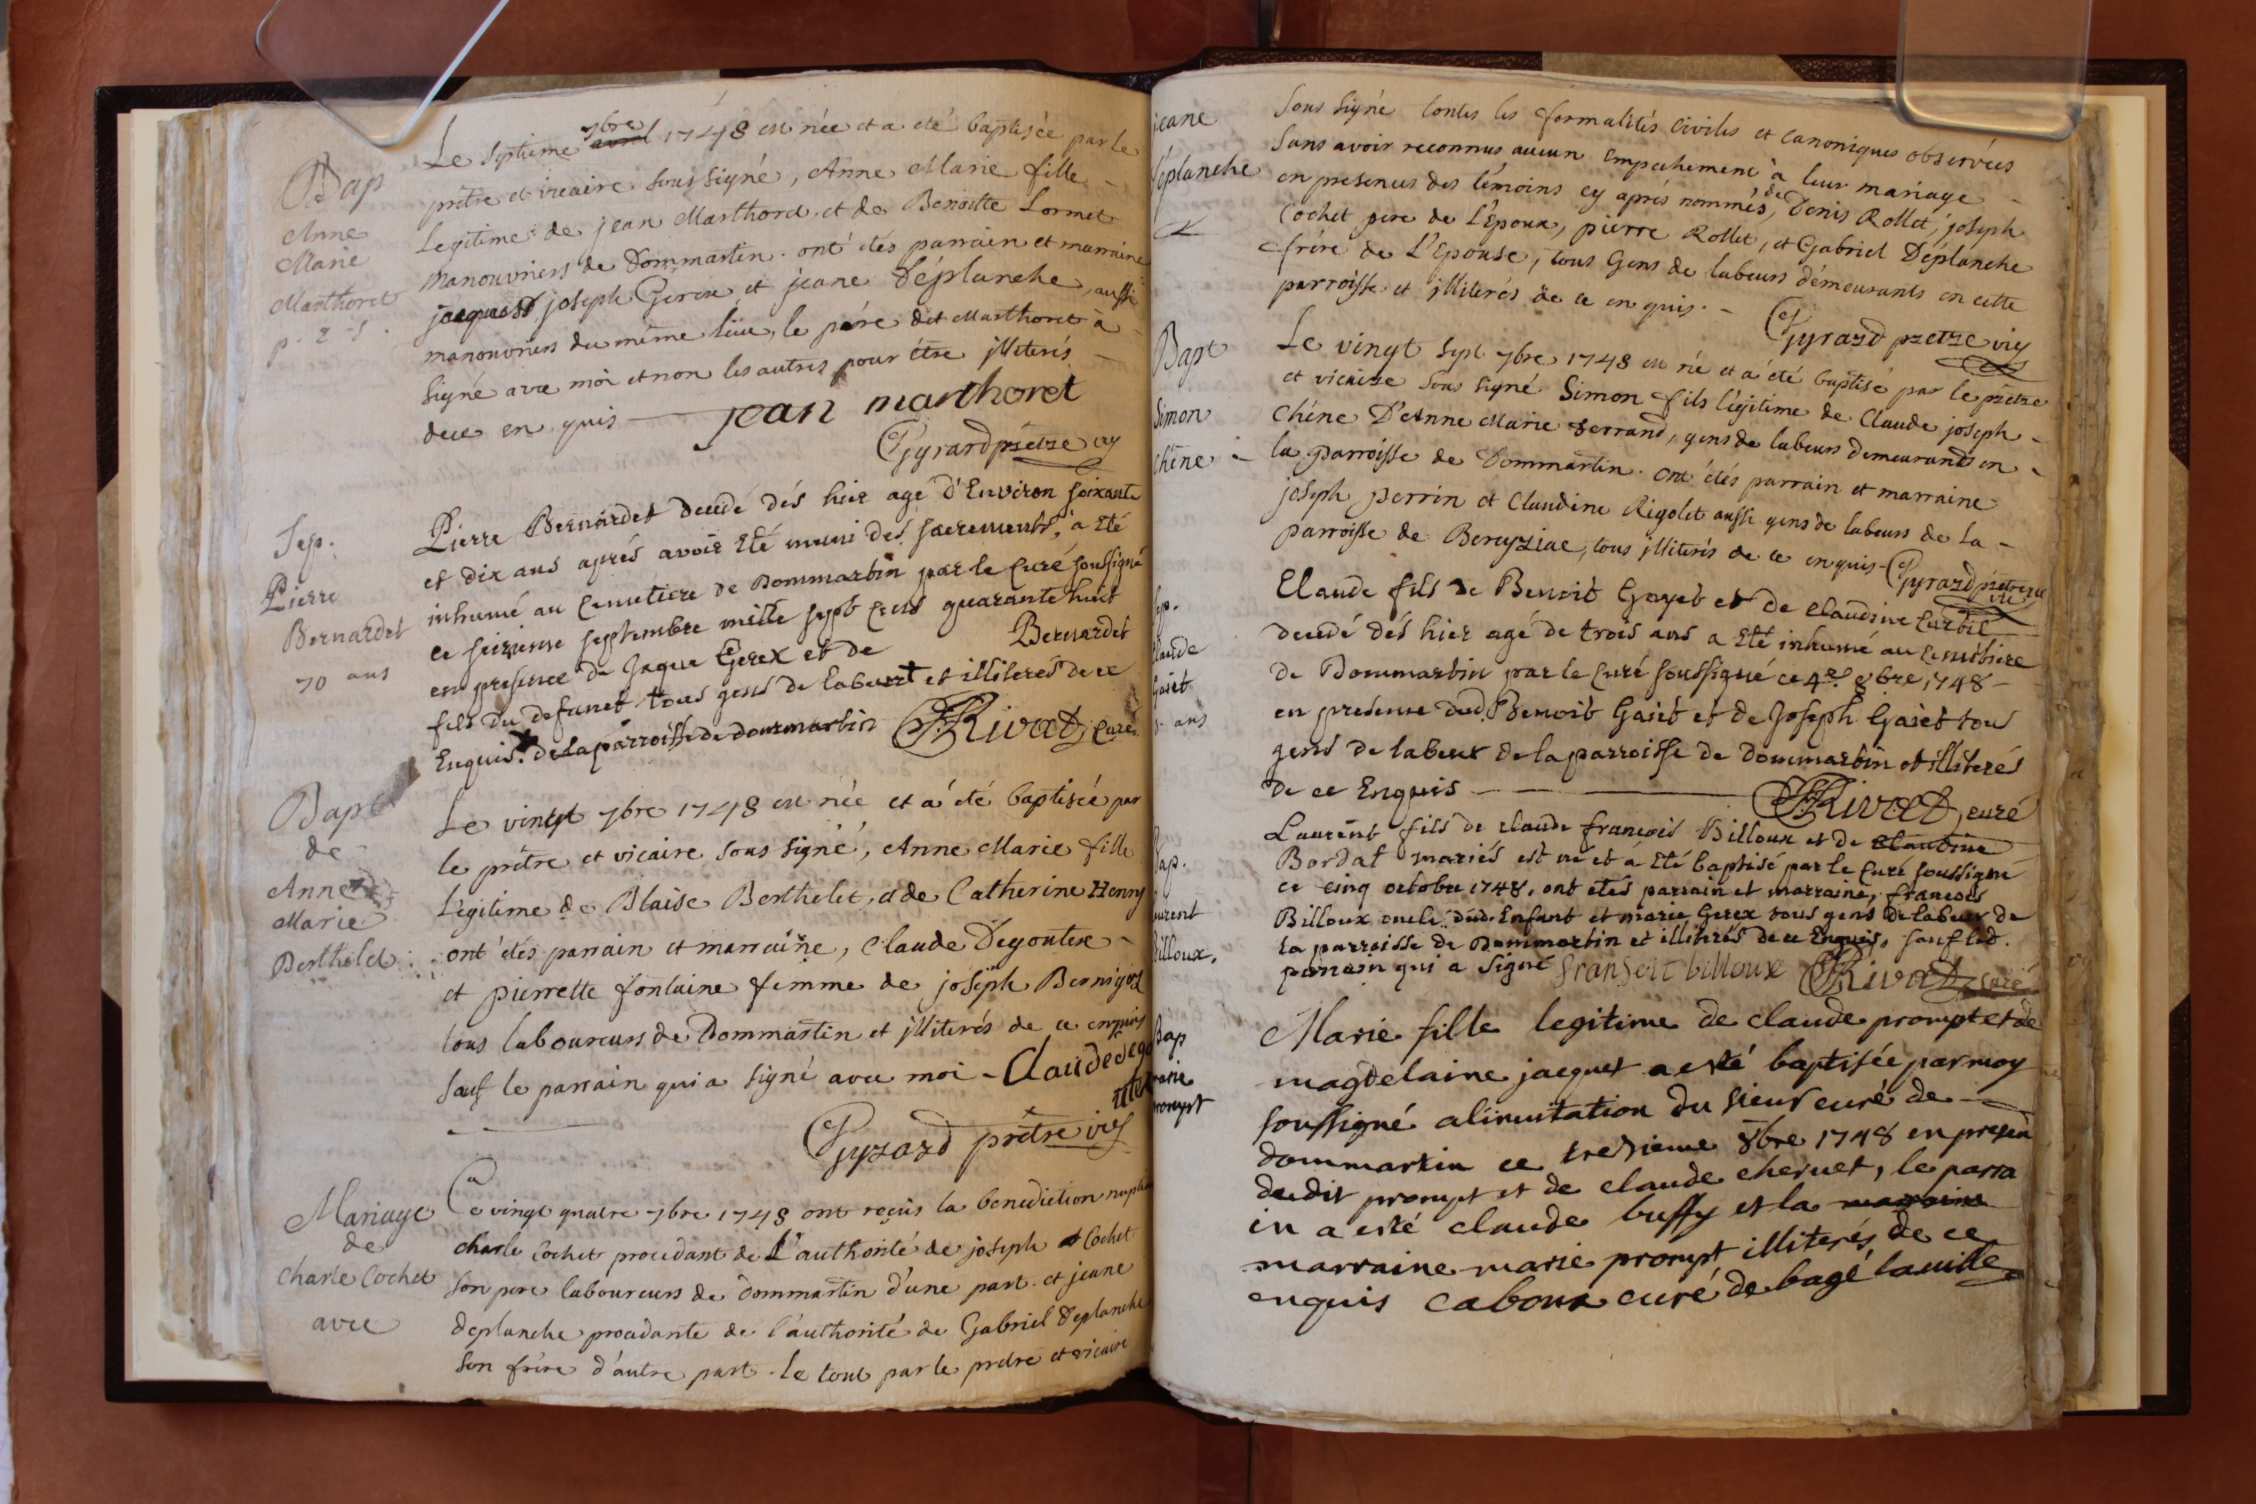 Bap
Anne
Marie
Marthoret
p. 2 s.
Le septieme avril 7bre 1748 est née et a eté baptisée par le
prêtre et vicaire sous signé, Anne Marie fille
Legitime de jean Marthoret et de Benoitte Lornet
manouvriers de Dommartin. ont étés parrain et marraine
joseph Gerex et jeane Déplanche, aussi
manouvriers du même lieu, le pére dit Marthoret à
signé avec moi et non les autres pour être jlliterés
dece en quis jean marthoret
Gyrard prêtre vic
Sep.
Pierre
Bernardet
70 ans
Pierre Bernardet decedé dés hier agé d'Environ soixante
et dix ans aprés avoir Eté muni des sacrements, a Eté
inhumé au Cemetiere de Dommartin par le Curé soussigné
ce seizieme septembre mille sept Cents quarante huit
en presence de Jaque Gerex et de Bernardet
fils du defunct tous gens de labeur + et illiterés de ce
Enquis. + de la parroisse de dommartin JRivat, curé
Bapt
de
Anne
Marie
Berthelet
Le vingt 7bre 1748 est née et a été baptisée par
le prêtre et vicaire sous signé, Anne Marie fille
Légitime de Blaise Berthelet, et de Catherine Henry
ont étés parrain et marraine, Claude Degoutex
et pierrette fontaine femme de joseph Bernigod
tous laboureurs de Dommartin et jlliterés de ce enquis
sauf le parrain qui a signé avec moi - Claude dego
utte
Gyrard prêtre vic
Mariage
de
Charle Cochet
avec
Ce vingt quatre 7bre 1748 ont reçus la benediction nuptia
charle Cochet procedant de L'authorité de joseph Cochet
son pere laboureurs de Dommartin d'une part. et jeane
deplanche procedante de l'authorité de Gabriel Deplanche
son frére d'autre part. le tout par le prêtre et vicaire
jeane
déplanche
sous signé toutes les formalités Civiles et Canoniques observées
sans avoir reconnus aucun Empechement à leur mariage
en presences des témoins cy aprés nommés, de Denis Rollet, joseph
Cochet pere de L'Epoux, pierre Rollet, et Gabriel Déplanche
frére de L'Epouse, tous Gens de labeurs démeurants en cette
parroisse et jlliterés de ce en quis. -
Gyrard pretre vic
Bapt
Simon
Chêne
Le vingt sept 7bre 1748 est né et a été baptisé par le prêtre
et vicaire sous signé Simon fils légitime de Claude joseph
Chêne D'Anne Marie Ferrand, gens de labeurs demeurants en
la parroisse de Dommartin. ont étés parrain et marraine
joseph perrin et Claudine Rigolet aussi gens de labeurs de la
parroisse de Bereyziac, tous jlliterés de ce enquis - Gyrard pretre vic
vic
Sep.
Claude
Gaiet
3 ans
Claude fils de Benoit Gayet et de Claudine Curtil
decedé dés hier agé de trois ans a Eté inhumé au Cemetiere
de Dommartin par le Curé soussigné ce 4e 8bre 1748 -
en presence dud. Benoit Gaiet et de Joseph Gaiet tous
gens de labeur de la parroisse de Dommartin et illiterés
de ce Enquis JRivat, curé
Bap.
Laurent
Billoux.
Laurent fils de Claude francois Billoux et de Claudine
Bordat mariés est né et a Eté baptisé par le Curé soussigné
ce cinq octobre 1748, ont etes parrain et marraine, francois
Billoux oncle dud. Enfant et marie Gerex tous gens de labeur de
la parroisse de Dommartin et illiterés de ce Enquis, sauf led.
parrain qui a signé fransoit billoux JRivat, curé
Bap
marie
prompt
Marie fille legitime de claude prompt et de
magdelaine jacquet a esté baptisée par moy
soussigné alinvitation du sieur curé de
dommartin ce tresieme 8bre 1748 en presen
dudit prompt et de claude chervet, le parra
in a esté claude buffy et la maraine
marraine marie prompt illiterés de ce
enquis Caboux curé de bagé la ville